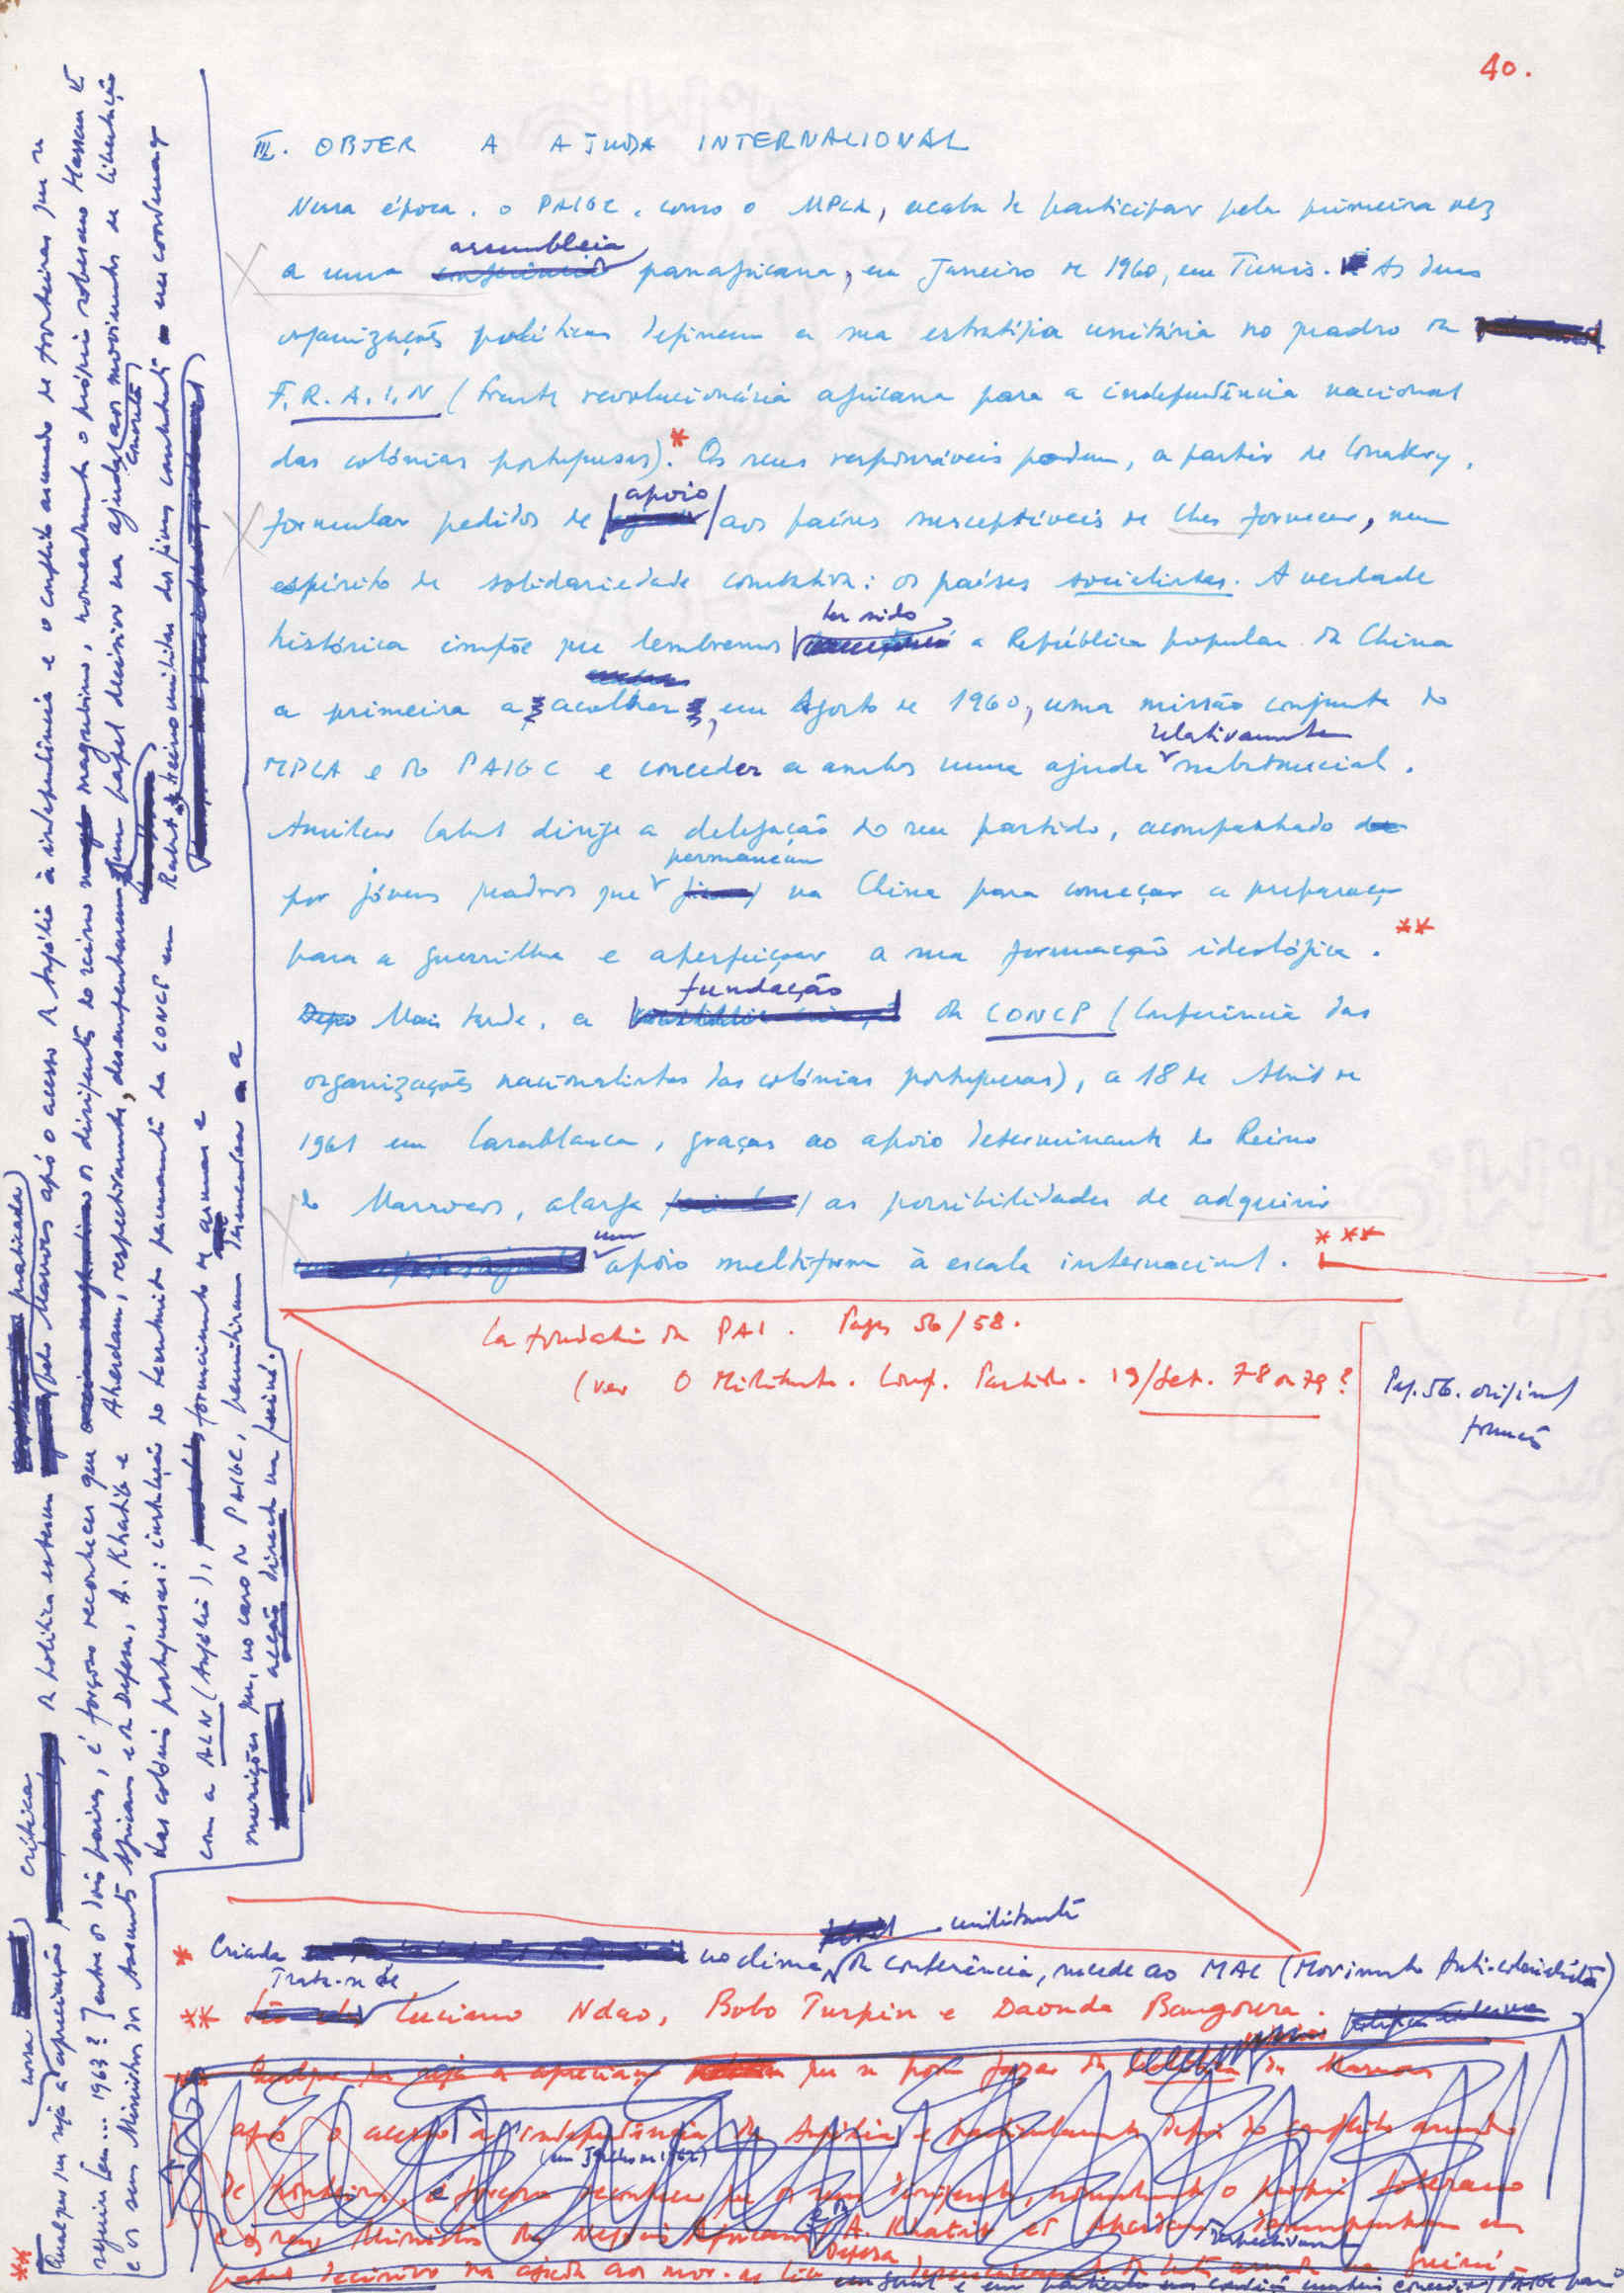 40.
III. OBTER A AJUDA INTERNACIONAL
Nessa época, o PAIGC, como o MPLA, acaba de participar pela primeira vez
a uma assembleia panafricana, em Janeiro de 1960, em Tunis. As duas
organizações políticas definem a sua estratégia unitária no quadro da
F.R.A.I.N (Frente revolucionária africana para a independência nacional
das colónias portuguesas).* Os seus responsáveis podem, a partir de Conakry,
formular pedidos de apoio aos países susceptíveis de lhes fornecer, num
espírito de solidariedade combativa: os países socialistas. A verdade
histórica impõe que lembremos ter sido a República popular da China
a primeira a acolher, em Agosto de 1960, uma missão conjunta do
MPLA e do PAIGC e conceder a ambos uma ajuda relativamente substancial.
Amilcar Cabral dirige a delegação do seu partido, acompanhado
por jóvens quadros que permanecem na China para começar a preparação
para a guerrilha e aperfeiçoar a sua formação ideológica. **
Mais tarde, a fundação da CONCP (Conferência das
organizações nacionalistas das colónias portuguesas), a 18 de Abril de
1961 em Casablanca, graças ao apoio determinante do Reino
de Marrocos, alarga as possibilidades de adquirir
um apoio multiforme à escala internacional. ***
La fondation du PAI. Pages 56/58.
(ver O Militante. Conf. Partido. 19/Set. 78 ou 79?
Pag. 56. original
francês
* Criada no clima militante da conferência, sucede ao MAC (Movimento Anti-colonialista)
** Trata-se de Luciano Ndao, Bobo Turpin e Daouda Bangoura.
*** Qualquer que seja a nossa apreciação crítica da política externa praticada pelo Marrocos após o acesso da Argélia à independência e o conflito armado de fronteiras que se
seguiu (em... 1963?) entre os dois países, é forçoso reconhecer que os dirigentes do reino magrebino, nomeadamente o próprio soberano Hassan II
e os seus Ministros dos Assuntos Africanos e da Defesa, A. Khatib e Aherdam, respectivamente, desempenharam um papel decisivo na ajuda concreta aos movimentos de libertação
das colónias portuguesas: instalação do secretariado permanente da CONCP em Rabat, treino militar dos jovens combatentes em coordenação
com a ALN (Argélia), fornecimento de armas e
munições que, no caso do PAIGC, permitiram desencadear a
acção directa na Guiné.